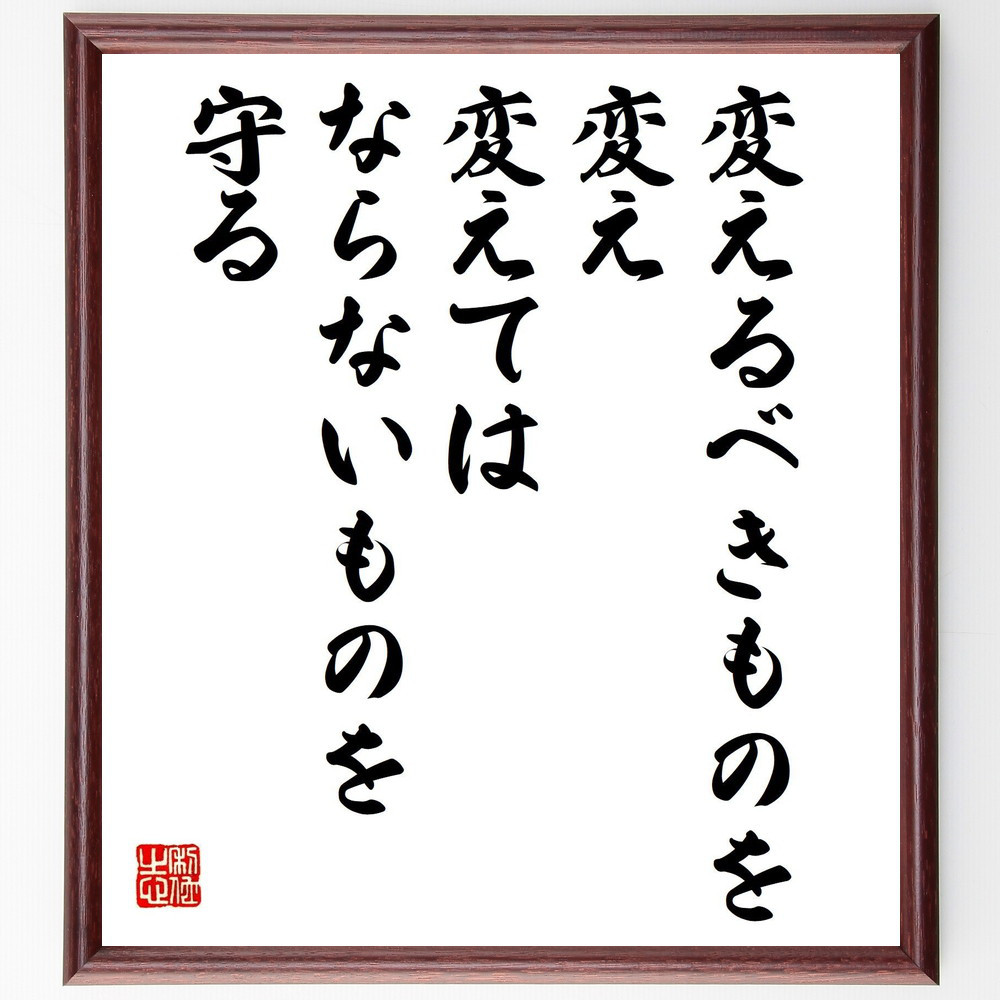 変えるべきものを
変え
変えては
ならないものを
守る